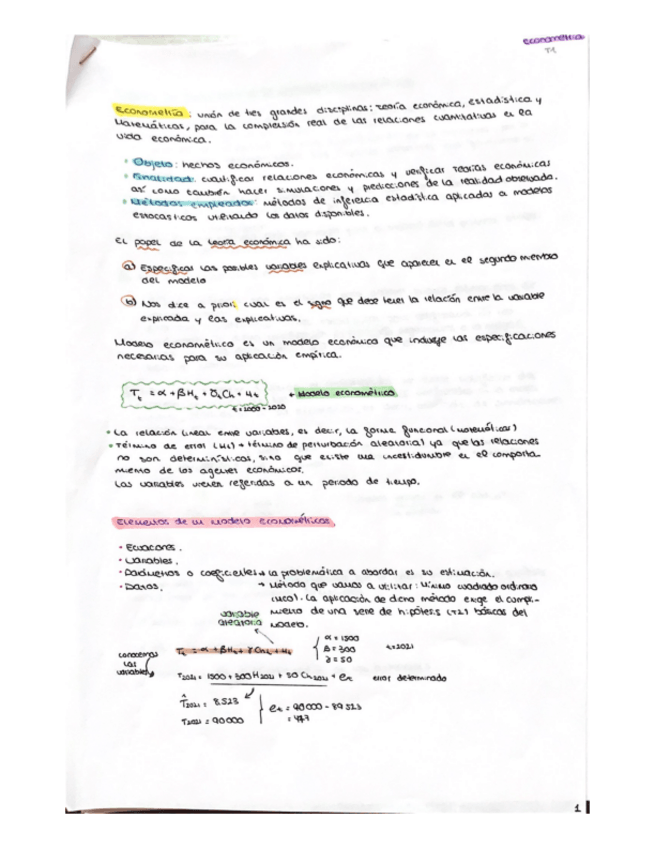 econometría
T1
Econometría: unión de tres grandes disciplinas: teoría económica, estadística y
Matemáticas, para la comprensión real de las relaciones cuantitativas en la
vida económica.
• Objeto: hechos económicos.
• Finalidad: cuantificar relaciones económicas y verificar teorías económicas
así como también hacer simulaciones y predicciones de la realidad observada.
• Métodos empleados: métodos de inferencia estadística aplicadas a modelos
estocásticos utilizando los datos disponibles.
El papel de la teoría económica ha sido:
a) Especificar las posibles variables explicativas que aparecen en el segundo miembro
del modelo
b) Nos dice a priori cual es el signo que debe tener la relación entre la variable
explicada y las explicativas.
Modelo econométrico es un modelo económico que incluye las especificaciones
necesarias para su aplicación empírica.
Tt = α + βHt + γtCh + ut ← Modelo econométrico
t = 2000 - 2020
• La relación lineal entre variables, es decir, la forma funcional (matemáticas)
• Término de error (ut) → término de perturbación aleatoria) ya que las relaciones
no son determinísticas, sino que existe una incertidumbre en el comporta-
miento de los agentes económicos.
Las variables vienen referidas a un periodo de tiempo.
Elementos de un modelo econométricos,
• Ecuaciones.
• Variables.
• Parámetros o coeficientes → la problemática a abordar es su estimación.
• Datos. → Método que vamos a utilizar: Mínimo cuadrado ordinario
(MCO). La aplicación de dicho método exige el cumpli-
variable miento de una serie de hipótesis (T2) básicas del
aleatoria modelo.
conocemos las variables Tt = α + βHt + γCht + ut { α = 1500 β = 300 γ = 50 t = 2021
T2021 = 1500 + 300H2021 + 50Ch2021 + et error determinado
T̂2021 = 8.523 } et = 90000 - 89523
T2021 = 90000 = 477
1